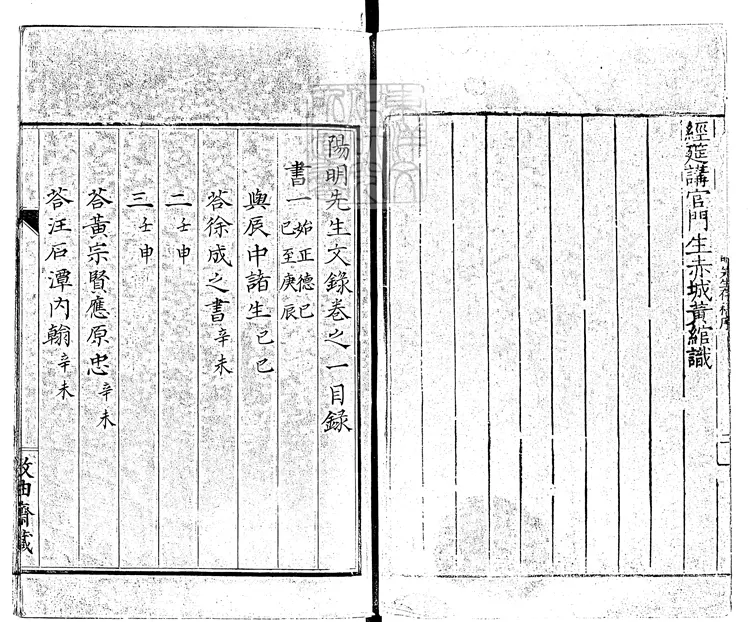 經筵講官門生赤城黃綰識
陽明先生文錄卷之一目錄
書一 始正德己巳至庚辰
與辰中諸生 己巳
荅徐成之書 辛未
二 壬申
三 壬申
荅黃宗賢應原忠 辛未
荅汪石潭內翰 辛未